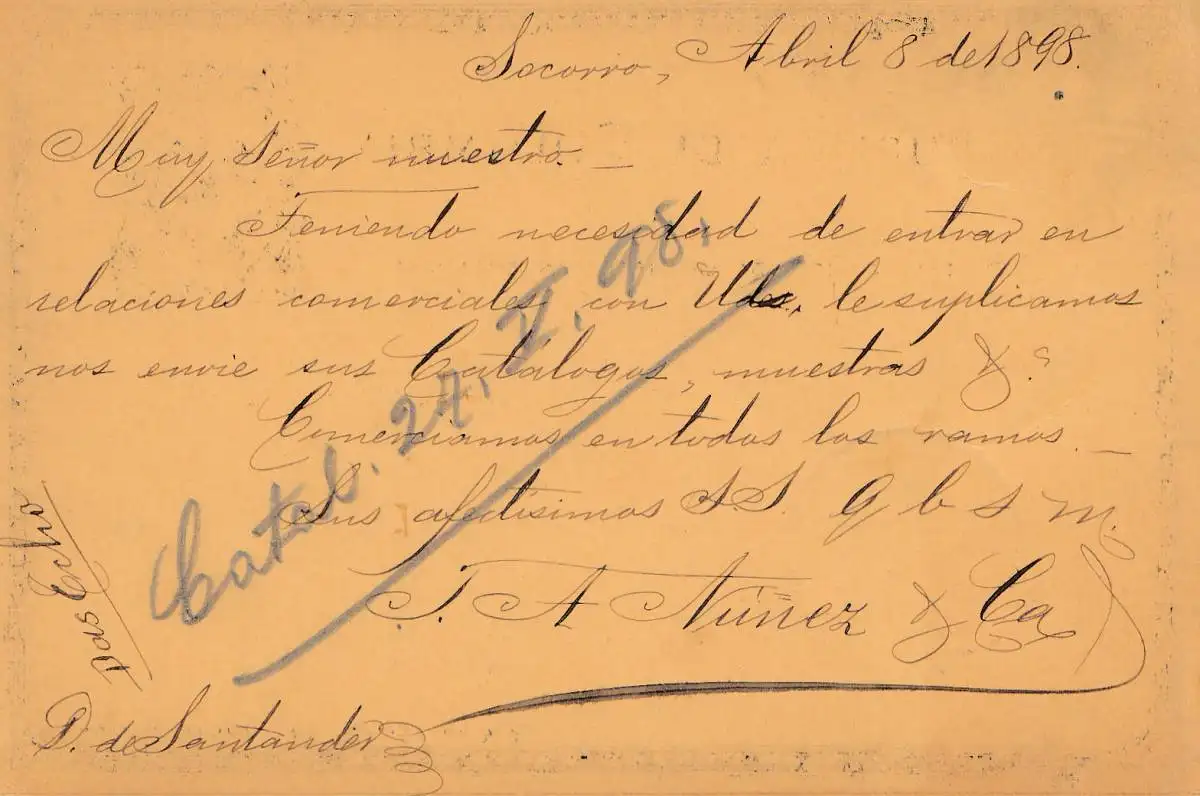 Socorro, Abril 8 de 1898.
Muy Señor nuestro. —
Teniendo necesidad de entrar en
relaciones comerciales con Uds, le suplicamos
nos envie sus Catálogos, muestras &.ª
Comerciamos en todos los ramos. —
Sus afectísimos S.S. q b s m.
T. A Núñez & Ca
D. de Santander
Das Echo
Catal. 27. V. 98.